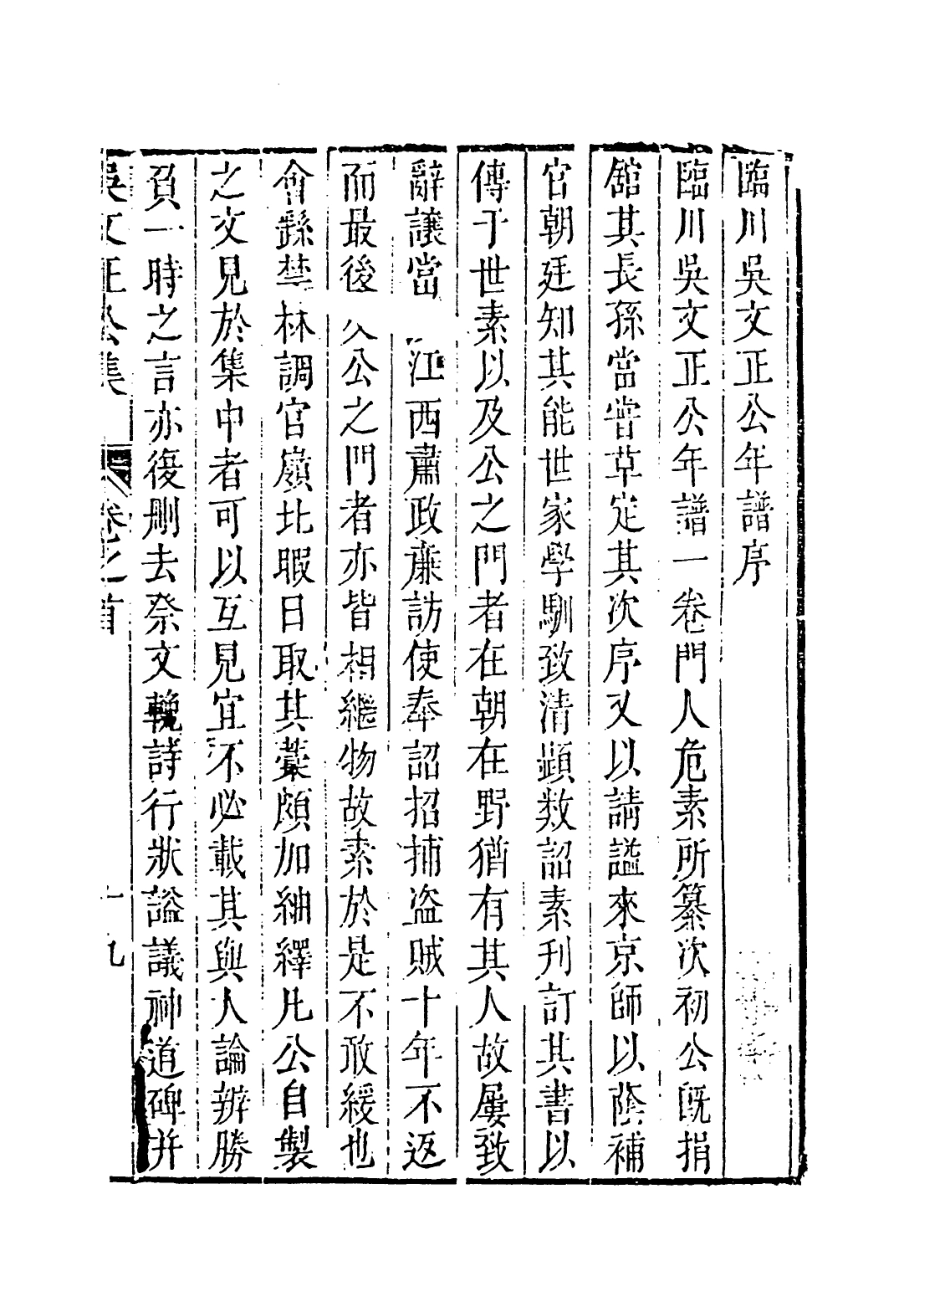 臨川吳文正公年譜序
臨川吳文正公年譜一卷門人危素所纂次初公既捐
舘其長孫當嘗草定其次序又以請謚來京師以䕃補
官朝廷知其能世家學馴致清顯数詔素刋訂其書以
傳于世素以及公之門者在朝在野猶有其人故屢致
辭讓當江西肅政亷訪使奉詔招捕盗賊十年不返
而最後公之門者亦皆相繼物故素於是不敢緩也
㑹繇禁林調官嶺北暇日取其藁頗加紬繹凡公自製
之文見於集中者可以互見宜不必載其與人論辦勝
負一時之言亦復刪去祭文輓詩行狀謚議神道碑并
吳文正公集 卷之首 十九